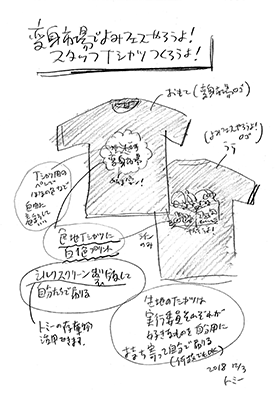 変身市場でよみフェスやろうよ!
スタッフTシャツつくろうよ!
おもて(変身市場ロゴ)
(よみフェスやろうよ!
ロゴ)
うら
変身市場
Tシャツ用の
自由に
色地Tシャツに
白色プリント
シルクスクリーン製版して
自分たちで刷る
トミーの在庫物
活用できます。
生地のTシャツは
実行委員それぞれが
好きなものを自分用に
持ち寄って自分で刷る
(何枚でもOK)
2018 12/3
トミー